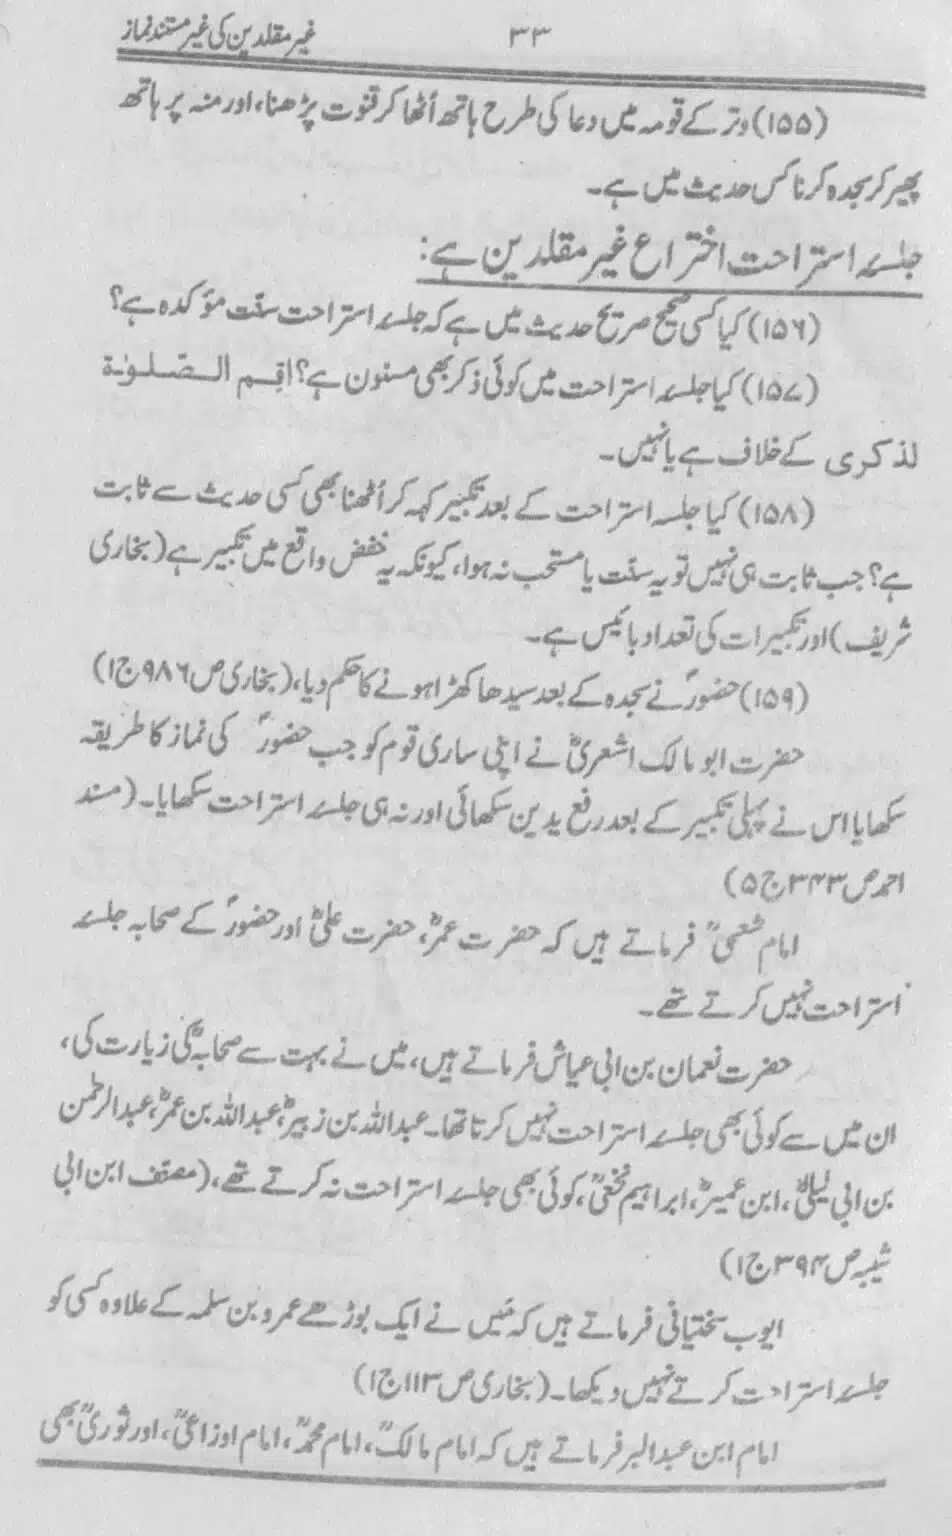 غیر مقلدین کی غیر مستند نماز ۳۳
(۱۵۵) وتر کے قومہ میں دعا کی طرح ہاتھ اُٹھا کر قنوت پڑھنا، اور منہ پر ہاتھ
پھیر کر سجدہ کرنا کس حدیث میں ہے۔
جلسۂ استراحت اختراع غیر مقلدین ہے:
(۱۵۶) کیا کسی صحیح صریح حدیث میں ہے کہ جلسۂ استراحت سنّت مؤکدہ ہے؟
(۱۵۷) کیا جلسۂ استراحت میں کوئی ذکر بھی مسنون ہے؟ اقِم الصّلوٰۃ
لذکری کے خلاف ہے یا نہیں۔
(۱۵۸) کیا جلسہ استراحت کے بعد تکبیر کہہ کر اُٹھنا بھی کسی حدیث سے ثابت
ہے؟ جب ثابت ہی نہیں تو یہ سنّت یا مستحب نہ ہوا، کیونکہ یہ خفض واقع میں تکبیر ہے (بخاری
شریف) اور تکبیرات کی تعداد بائیس ہے۔
(۱۵۹) حضورؐ نے سجدہ کے بعد سیدھا کھڑا ہونے کا حکم دیا، (بخاری ص ۹۸۶ ج۱)
حضرت ابو مالک اشعریؓ نے اپنی ساری قوم کو جب حضورؐ کی نماز کا طریقہ
سکھایا اس نے پہلی تکبیر کے بعد رفع یدین سکھائی اور نہ ہی جلسۂ استراحت سکھایا۔ (مسند
احمد ص ۳۴۳ ج۵)
امام شعبیؒ فرماتے ہیں کہ حضرت عمرؓ، حضرت علیؓ اور حضورؐ کے صحابہ جلسۂ
استراحت نہیں کرتے تھے۔
حضرت نعمان بن ابی عیاش فرماتے ہیں، میں نے بہت سے صحابہؓ کی زیارت کی،
ان میں سے کوئی بھی جلسۂ استراحت نہیں کرتا تھا۔ عبداللہ بن زبیرؓ، عبداللہ بن عمرؓ، عبدالرحمٰن
بن ابی لیلیؓ، ابن عمیرؓ، ابراہیم نخعیؒ، کوئی بھی جلسۂ استراحت نہ کرتے تھے، (مصنف ابن ابی
شیبہ ص ۳۹۴ ج۱)
ایوب سختیانی فرماتے ہیں کہ مَیں نے ایک بوڑھے عمرو بن سلمہ کے علاوہ کسی کو
جلسۂ استراحت کرتے نہیں دیکھا۔ (بخاری ص ۱۱۳ ج۱)
امام ابن عبدالبر فرماتے ہیں کہ امام مالکؒ، امام محمدؒ، امام اوزاعیؒ، اور ثوریؒ بھی